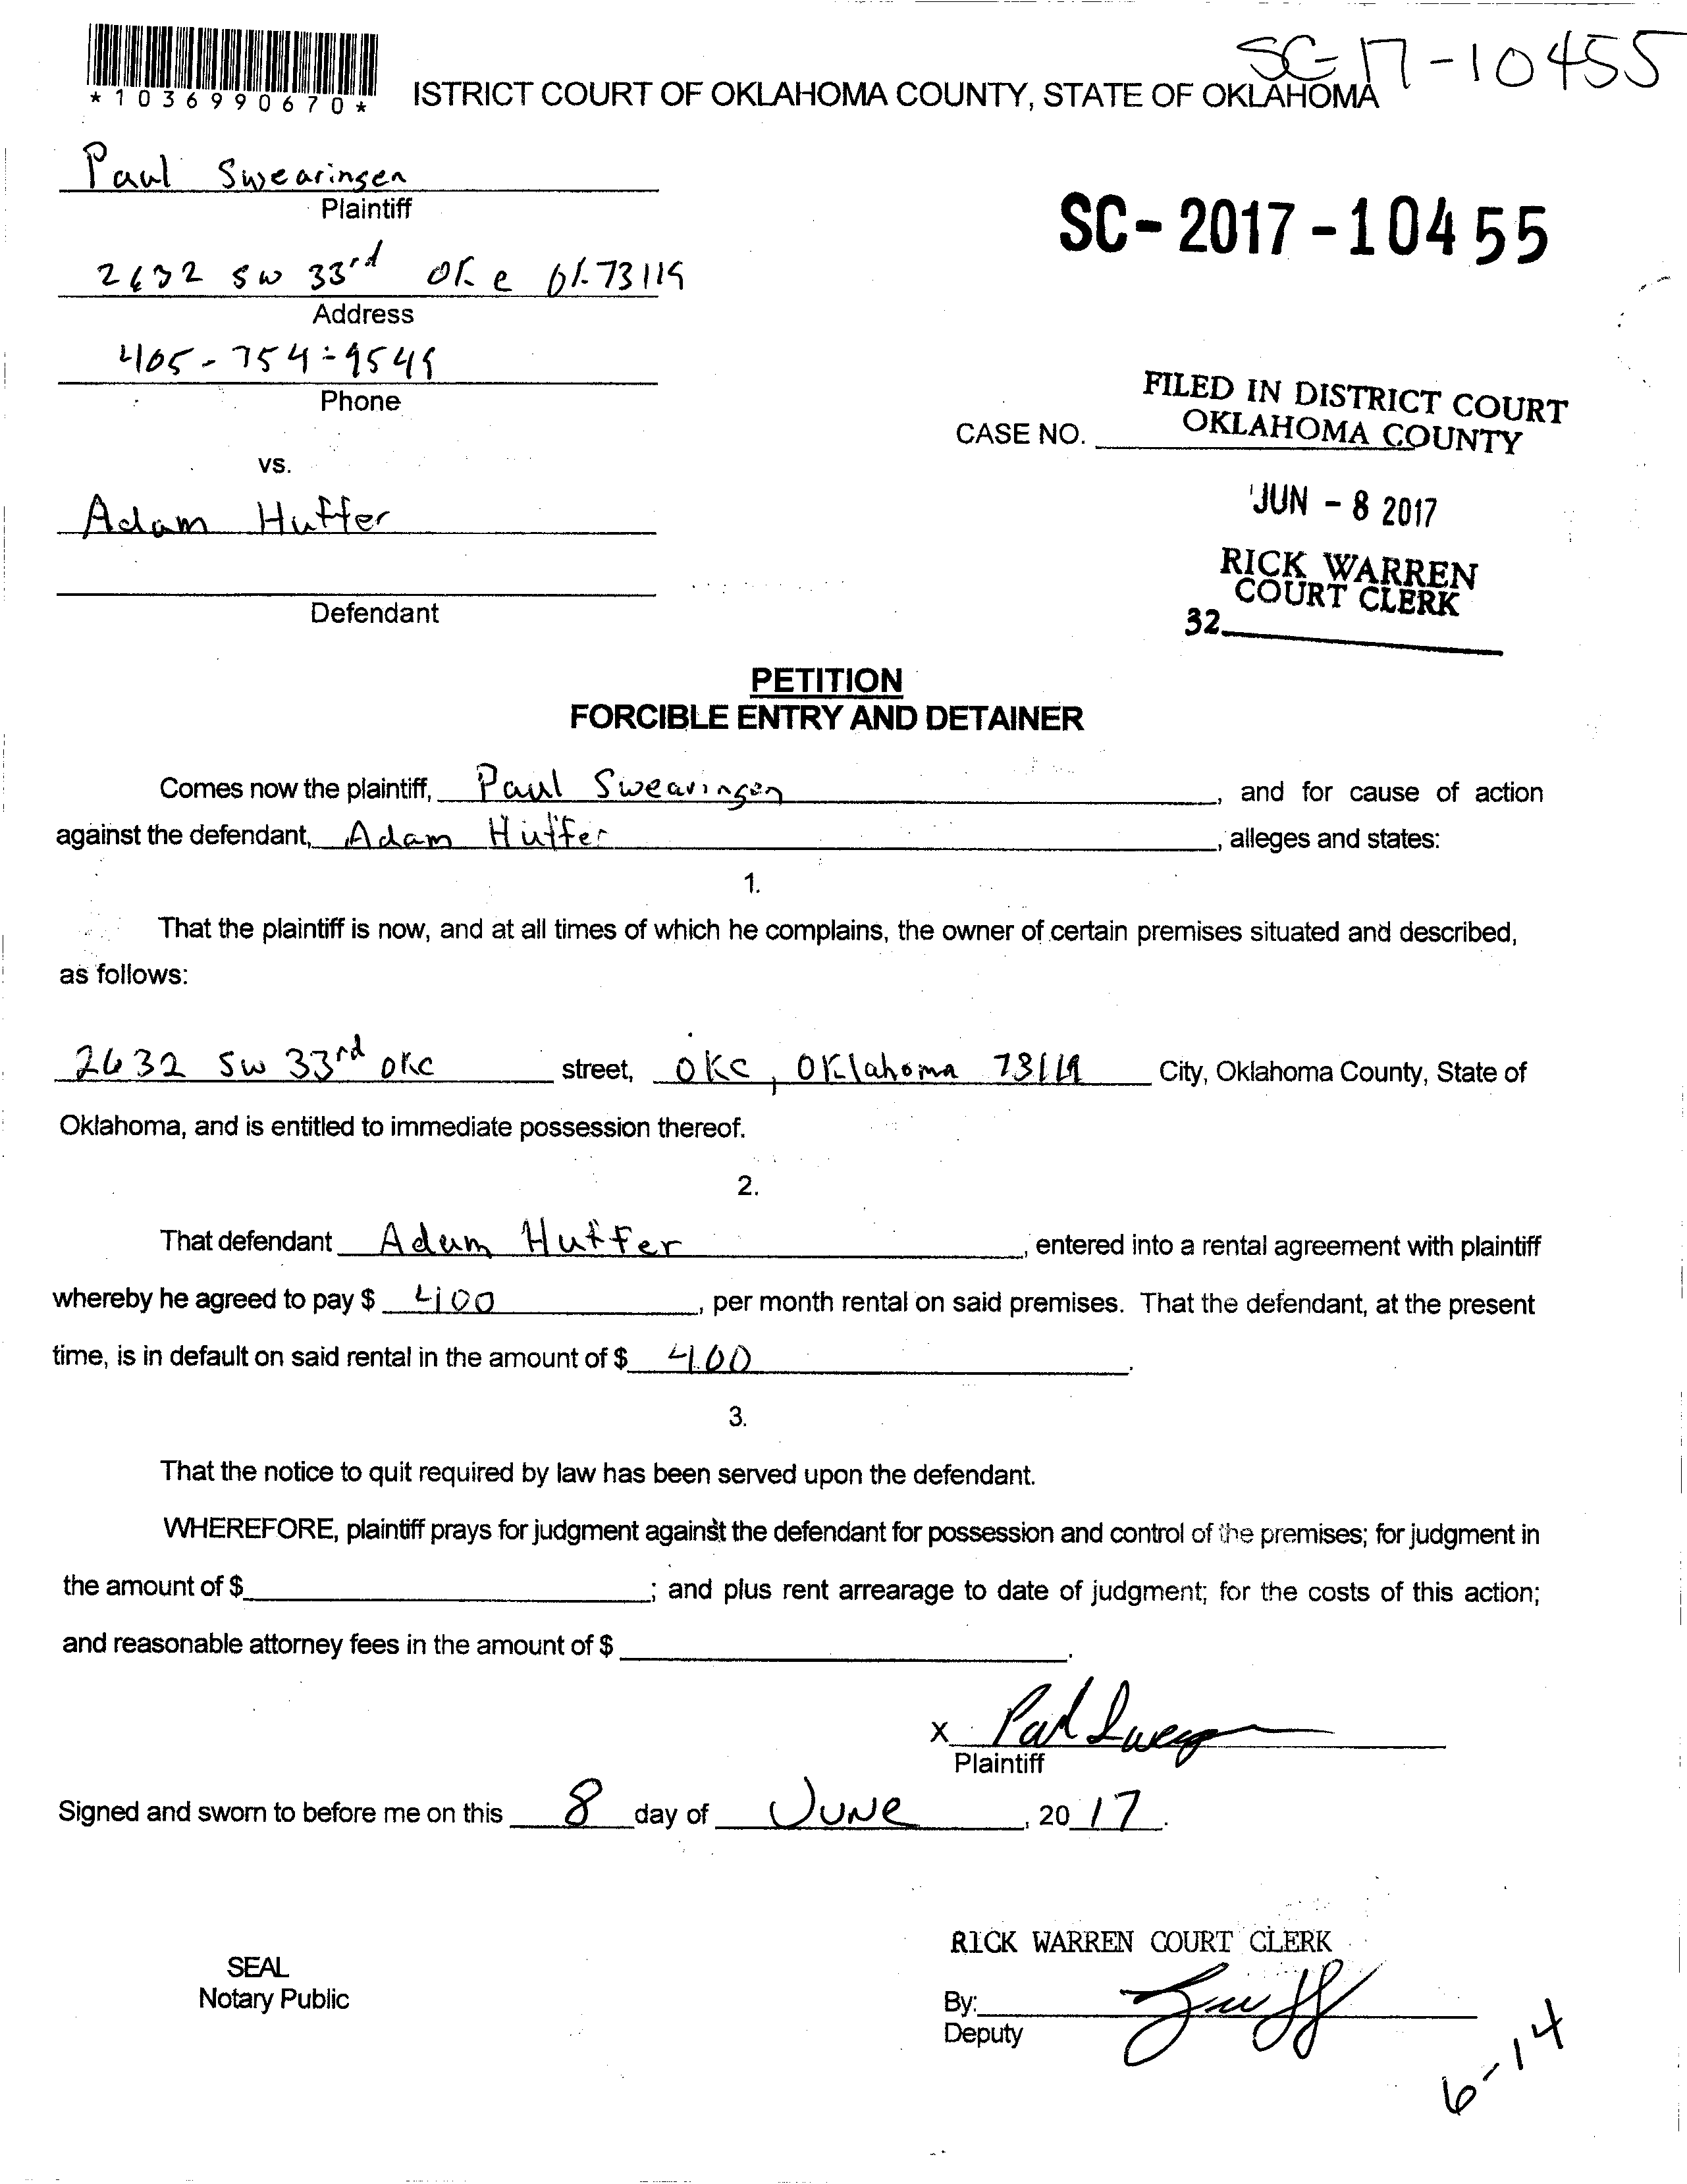 SC-17-10455
*1036990670*
ISTRICT COURT OF OKLAHOMA COUNTY, STATE OF OKLAHOMA
Paul Swearingen
Plaintiff
SC-2017-10455
2632 SW 33rd OKC OK 73119
Address
405-754-9549
Phone
FILED IN DISTRICT COURT
OKLAHOMA COUNTY
CASE NO.
vs.
JUN - 8 2017
Adam Huffer
RICK WARREN
COURT CLERK
Defendant
32
PETITION
FORCIBLE ENTRY AND DETAINER
Comes now the plaintiff, Paul Swearingen, and for cause of action
against the defendant, Adam Huffer, alleges and states:
1.
That the plaintiff is now, and at all times of which he complains, the owner of certain premises situated and described,
as follows:
2632 SW 33rd OKC street, OKC, Oklahoma 73119 City, Oklahoma County, State of
Oklahoma, and is entitled to immediate possession thereof.
2.
That defendant Adam Huffer, entered into a rental agreement with plaintiff
whereby he agreed to pay $ 400, per month rental on said premises. That the defendant, at the present
time, is in default on said rental in the amount of $ 400.
3.
That the notice to quit required by law has been served upon the defendant.
WHEREFORE, plaintiff prays for judgment against the defendant for possession and control of the premises; for judgment in
the amount of $ ; and plus rent arrearage to date of judgment; for the costs of this action;
and reasonable attorney fees in the amount of $ .
X Paul Swearingen
Plaintiff
Signed and sworn to before me on this 8 day of June, 20 17.
RICK WARREN COURT CLERK
SEAL
Notary Public
By:
Deputy
6-14